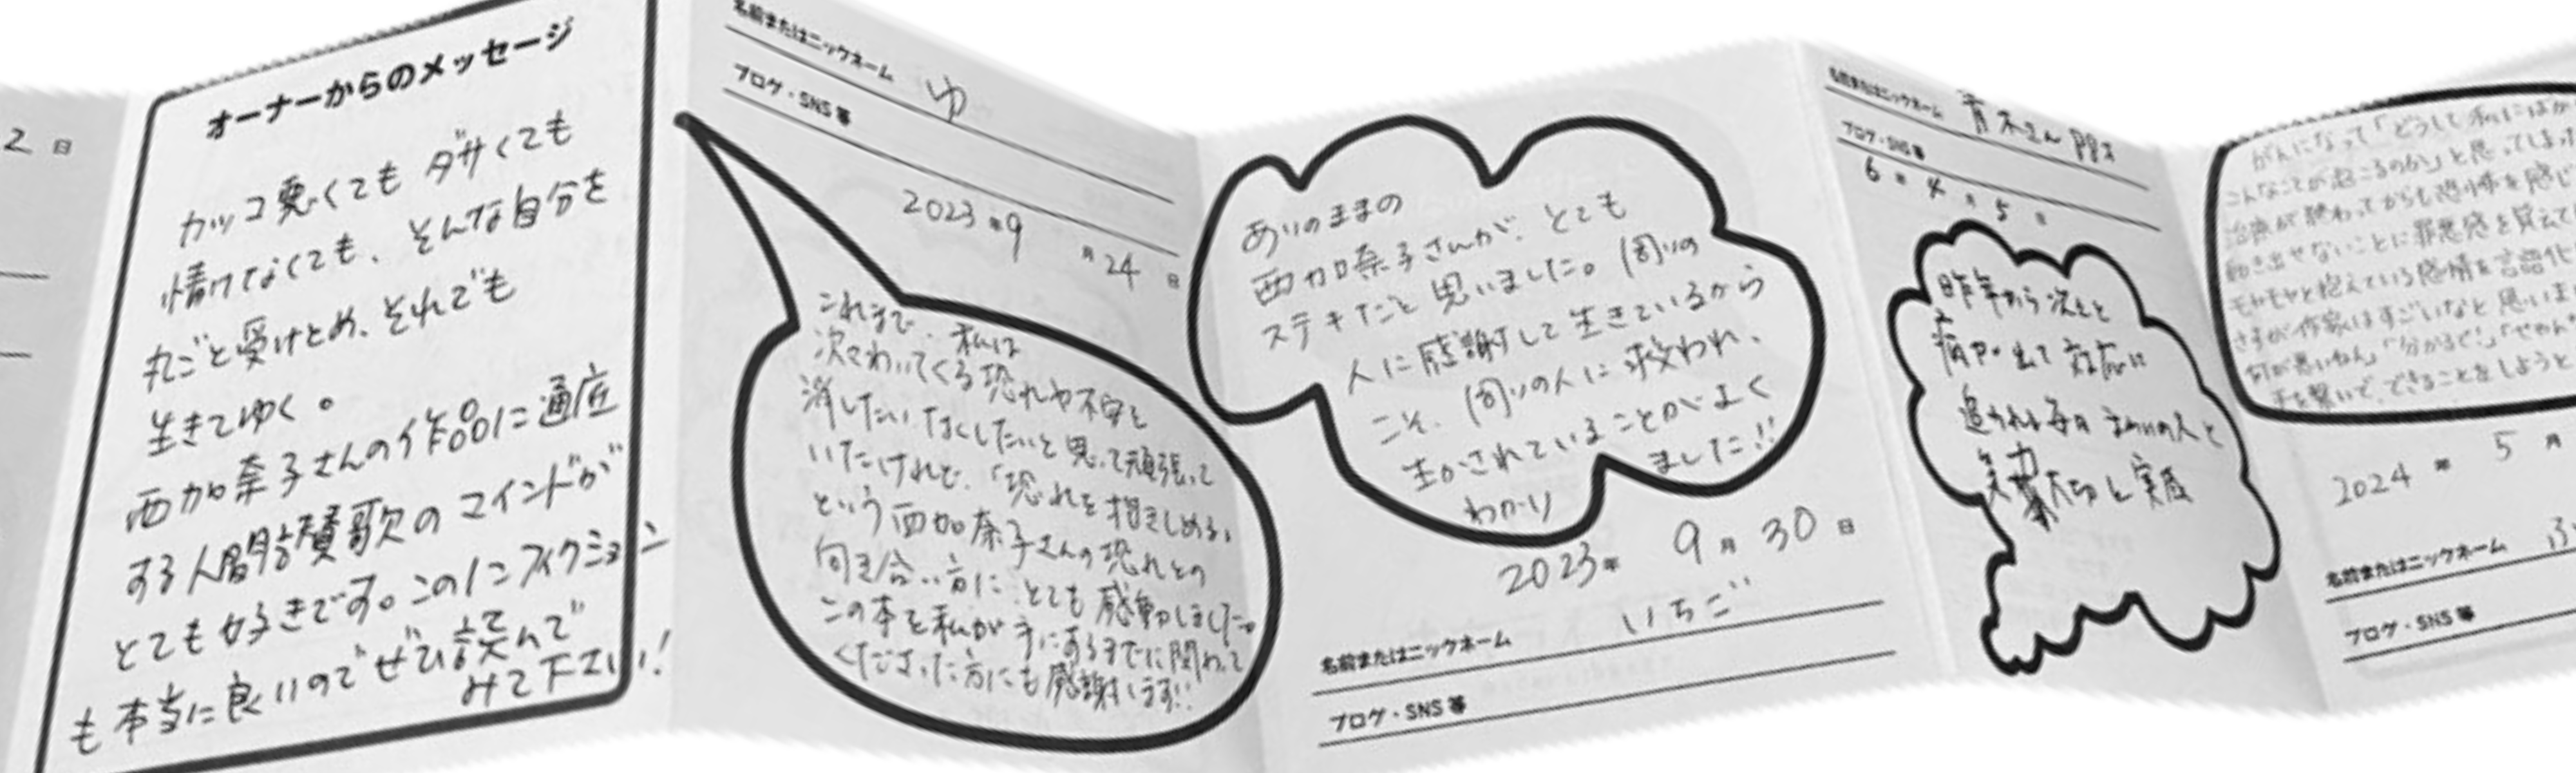 2日
オーナーからのメッセージ
カッコ悪くても ダサくても
情けなくても、そんな自分を
丸ごと受けとめ、それでも
生きてゆく。
西加奈子さんの作品に通底
する人間讃歌のマインドが
とても好きです。このノンフィクション
も本当に良いのでぜひ読んで
みて下さい!
名前またはニックネーム ゆ
ブログ・SNS等
2023年9月24日
これまで、私は
次々わいてくる恐れや不安を
消したい、なくしたいと思って頑張って
いたけれど、「恐れを抱きしめる」
という西加奈子さんの恐れとの
向き合い方に、とても感動しました。
この本を私が手にするまでに関わって
くださった方にも感謝します!!
ありのままの
西加奈子さんが、とても
ステキだと思いました。周りの
人に感謝して生きているから
こそ、周りの人に救われ、
生かされていることがよく
わかりました!!
2023年 9月30日
名前またはニックネーム いちご
ブログ・SNS等
名前またはニックネーム 青木さん
ブログ・SNS等
6年4月5日
昨年から次々と
病が出て対応に
追われる毎日 まわりの人と
大切と実感
がんになって「どうして私にばか
こんなことが起こるのか」と思ってしまっ
治療が終わってからも恐怖を感じ
動き出せないことに罪悪感を覚えて
モヤモヤと抱えている感情を言語化
さすが作家はすごいなと思いま
何が悪いねん」「分かるで」
手を繋いで、できることをしようと
2024年 5月
名前またはニックネーム
ブログ・SNS等